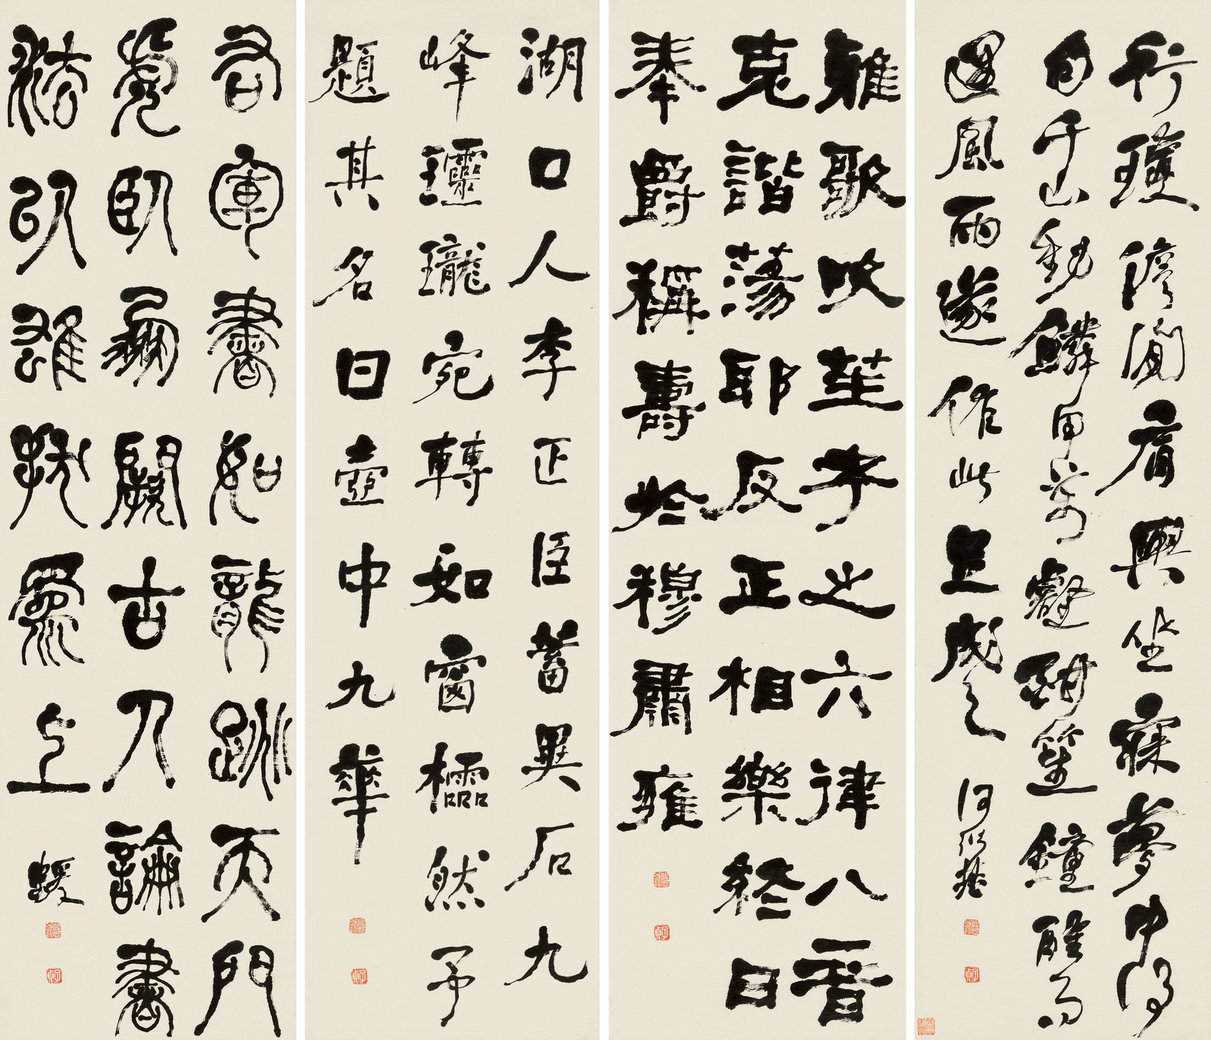 行瓊儋間肩輿坐寐夢中得
句千山動鱗甲萬壑酣笙鐘醒而
遇風雨遂作此足成之 何紹基
雅歌吹笙考之六律八音
克諧蕩邪反正相樂終日
奉爵稱壽於穆肅雍
湖口人李正臣蓄異石九
峰𤫩瓏宛轉如窗櫺然予
題其名曰壺中九華
右軍書如龍跳天門
虎臥鳳闕古人論書
法以雄拔爲上 蝯叟